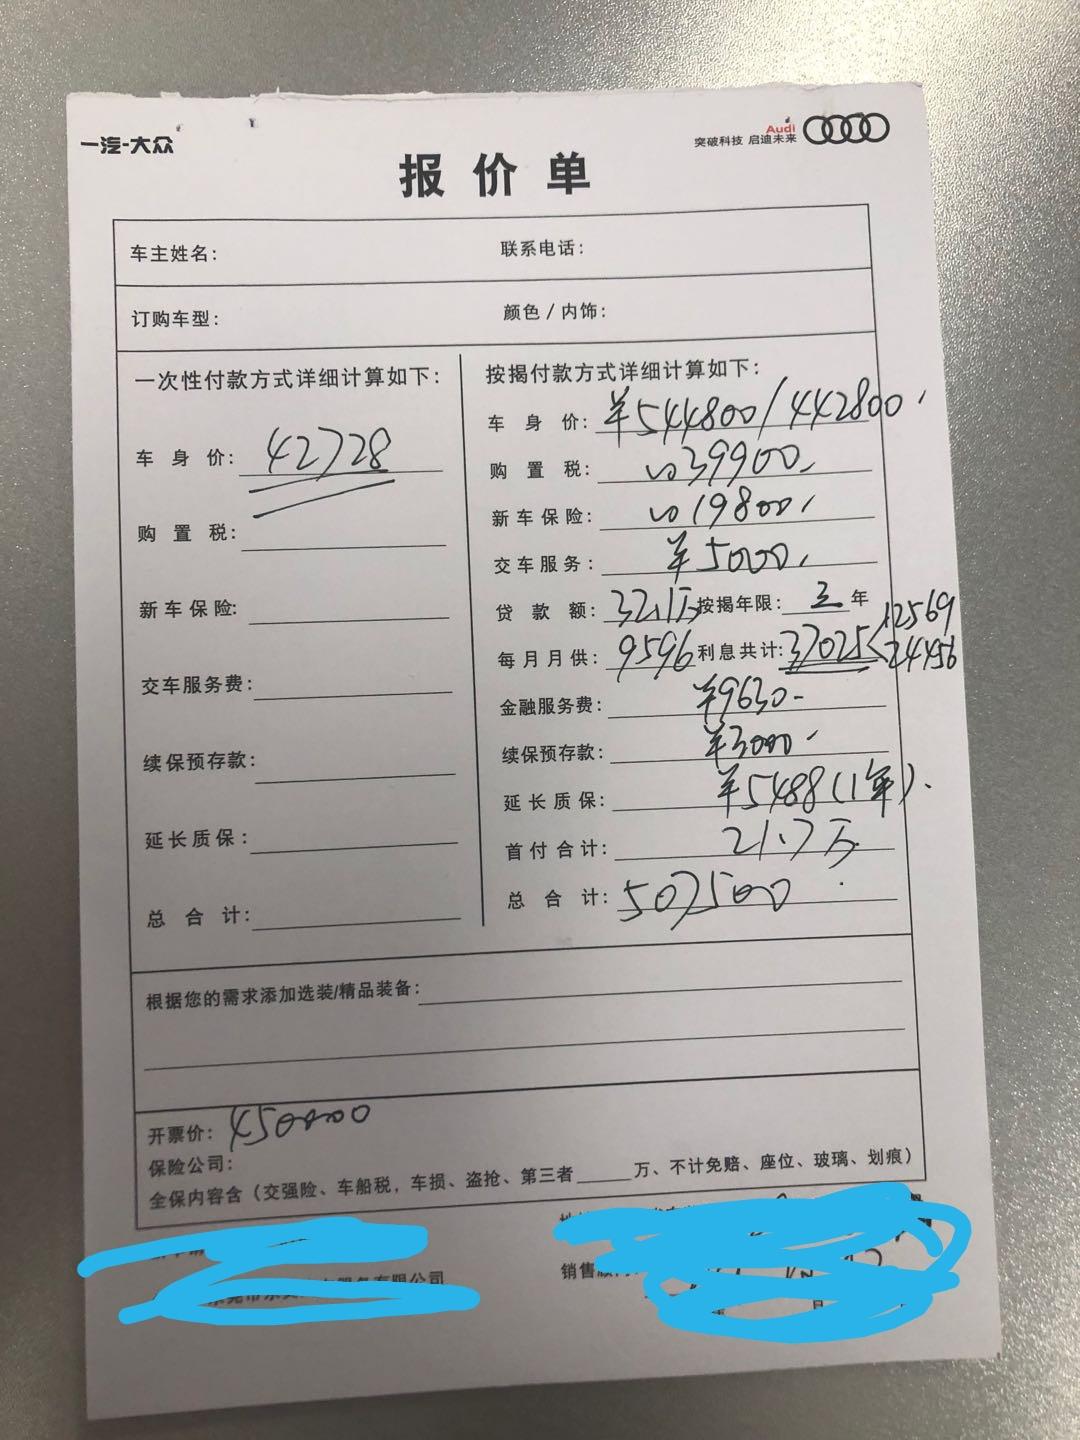 一汽-大众
Audi
突破科技 启迪未来
报价单
车主姓名： 联系电话：
订购车型： 颜色/内饰：
一次性付款方式详细计算如下：
车身价： 42728
购置税：
新车保险：
交车服务费：
续保预存款：
延长质保：
总合计：
按揭付款方式详细计算如下：
车身价： ¥544800/442800
购置税： 39900
新车保险： 19800
交车服务： ¥5000
贷款额： 32.1万 按揭年限： 三 年
每月月供： 9596 利息共计： 37025 < 12569
24456
金融服务费： ¥9630-
续保预存款： ¥3000
延长质保： ¥5488(1年).
首付合计： 21.7万
总合计： 507500
根据您的需求添加选装/精品装备：
开票价： 450000
保险公司：
全保内容含（交强险、车船税，车损、盗抢、第三者______万、不计免赔、座位、玻璃、划痕）
销售顾
服务有限公司